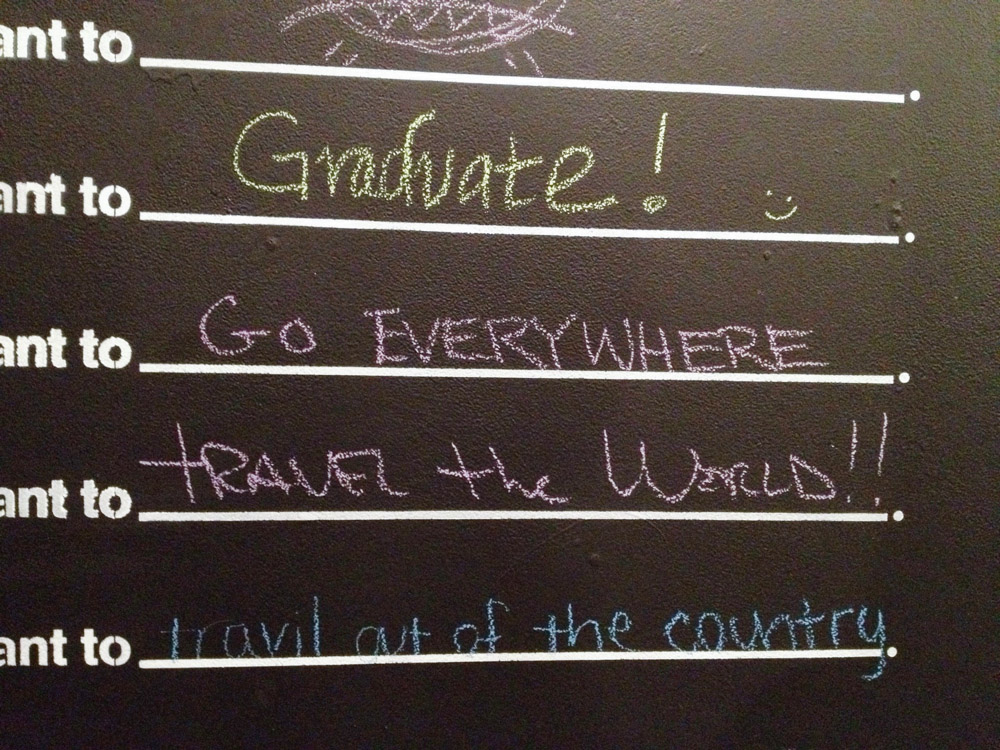 ant to .
ant to Graduate! .
ant to Go EVERYWHERE .
ant to tRAVEL the WORLD!! .
ant to travil out of the country .